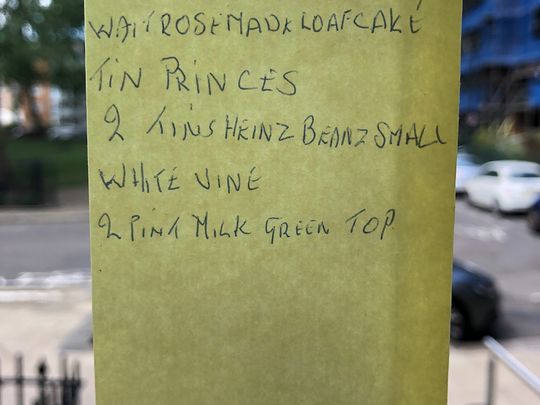 WAITROSE MADK LOAF CAKE
TIN PRINCES
2 TINS HEINZ BEANZ SMALL
WHITE VINE
2 PINT MILK GREEN TOP